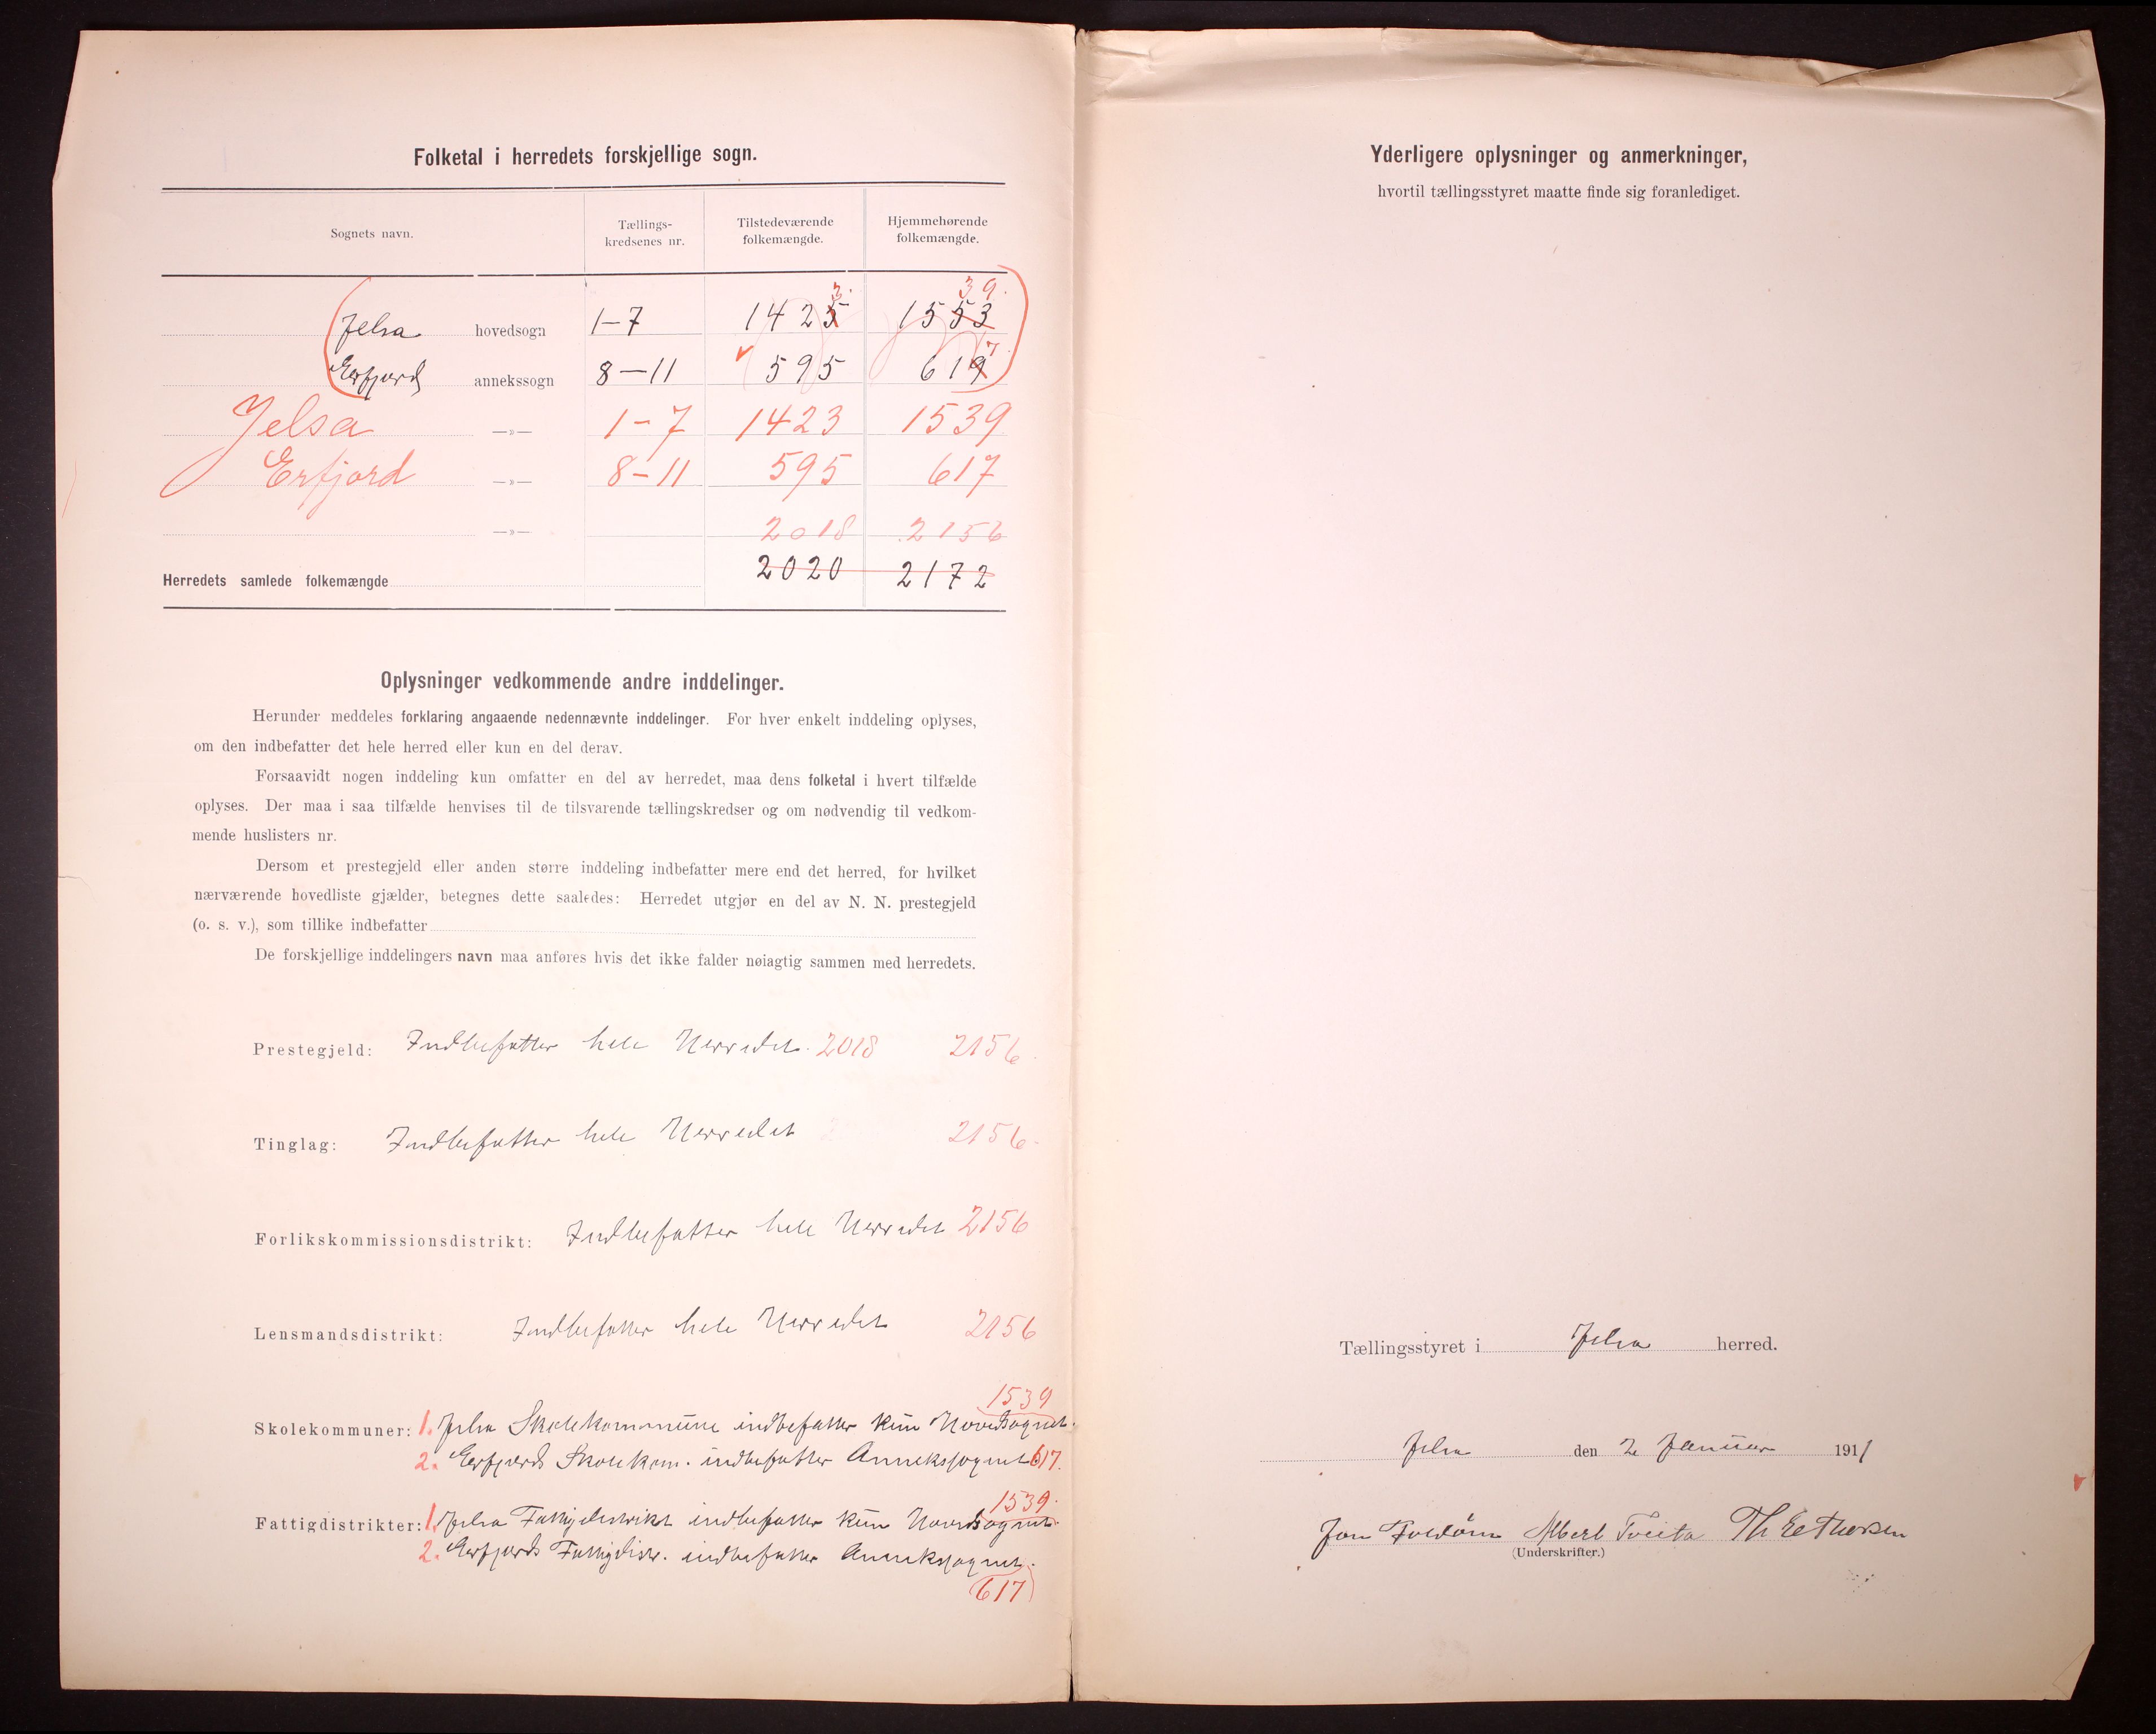 Folketal i herredets forskjellige sogn.
Sognets navn. Tællings-kredsenes nr. Tilstedeværende folkemængde. Hjemmehørende folkemængde.
3. 39.
Jelsa hovedsogn 1-7 1425 1553
7
Erfjord annekssogn 8-11 595 619
Jelsa —»— 1-7 1423 1539
Erfjord —»— 8-11 595 617
—»— 2018 2156
Herredets samlede folkemængde 2020 2172
Oplysninger vedkommende andre inddelinger.
Herunder meddeles forklaring angaaende nedennævnte inddelinger. For hver enkelt inddeling oplyses,
om den indbefatter det hele herred eller kun en del derav.
Forsaavidt nogen inddeling kun omfatter en del av herredet, maa dens folketal i hvert tilfælde
oplyses. Der maa i saa tilfælde henvises til de tilsvarende tællingskredser og om nødvendig til vedkom-
mende huslisters nr.
Dersom et prestegjeld eller anden større inddeling indbefatter mere end det herred, for hvilket
nærværende hovedliste gjælder, betegnes dette saaledes: Herredet utgjør en del av N. N. prestegjeld
(o. s. v.), som tillike indbefatter
De forskjellige inddelingers navn maa anføres hvis det ikke falder nøiagtig sammen med herredets.
Prestegjeld: Indbefatter hele Herredet. 2018 2156
Tinglag: Indbefatter hele Herredet 2156
Forlikskommissionsdistrikt: Indbefatter hele Herredet 2156
Lensmandsdistrikt: Indbefatter hele Herredet 2156
1539
Skolekommuner: 1. Jelsa Skolekommune indbefatter kun Hovedsognet.
2. Erfjords Skolekom. indbefatter Annekssognet 617.
1539.
Fattigdistrikter: 1. Jelsa Fattigdistrikt indbefatter kun Hovedsognet.
2. Erfjords Fattigdistr. indbefatter Annekssognet.
617
Yderligere oplysninger og anmerkninger,
hvortil tællingsstyret maatte finde sig foranlediget.
Tællingsstyret i Jelsa herred.
Jelsa den 2 Januar 1911
Jon Albert Tveita Th
(Underskrifter.)